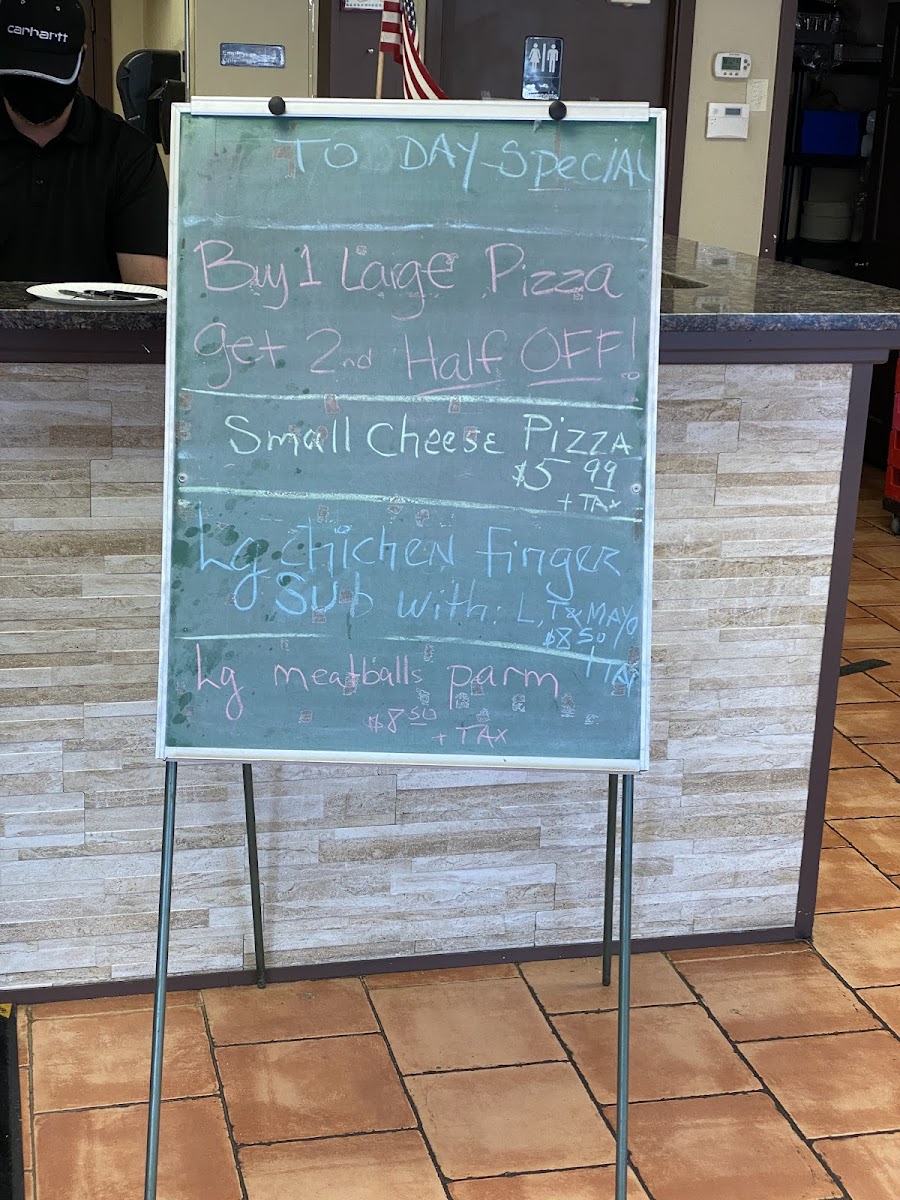 carhartt
TO DAY SpeciAL
Buy 1 Large Pizza
get 2nd Half OFF!
Small Cheese PiZZA
$5 99
+ TAX
Lg chichen finger
Sub with: L, T & MAYO
$8 50
+ TAX
Lg meatballs parm
$8 50
+ TAX